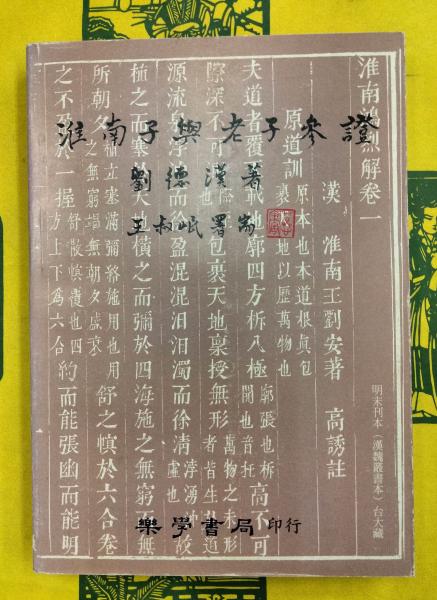 淮南子與老子參證
劉德漢著
王叔岷署耑
淮南鴻烈解卷一
漢 淮南王劉安著 高誘註
原道訓 原本也本道根真包
裹天地以歷萬物也
夫道者覆載地廓四方柝八極 廓張也柝
開也音托 高不可
際深不可 包裹天地稟授無形 萬物之未形
者皆生
源流泉浮 而徐盈混混汩汩濁而徐清
植之而塞於天地橫之而彌於四海施之無窮而無
所朝夕 植立塞滿彌 將施用也用
之無窮 無朝夕盛衰 舒之幎於六合卷
之不盈於一握 舒散幎覆也四
方上下為六合 約而能張幽而能明
明末刊本(漢魏叢書本)台大藏
樂學書局 印行